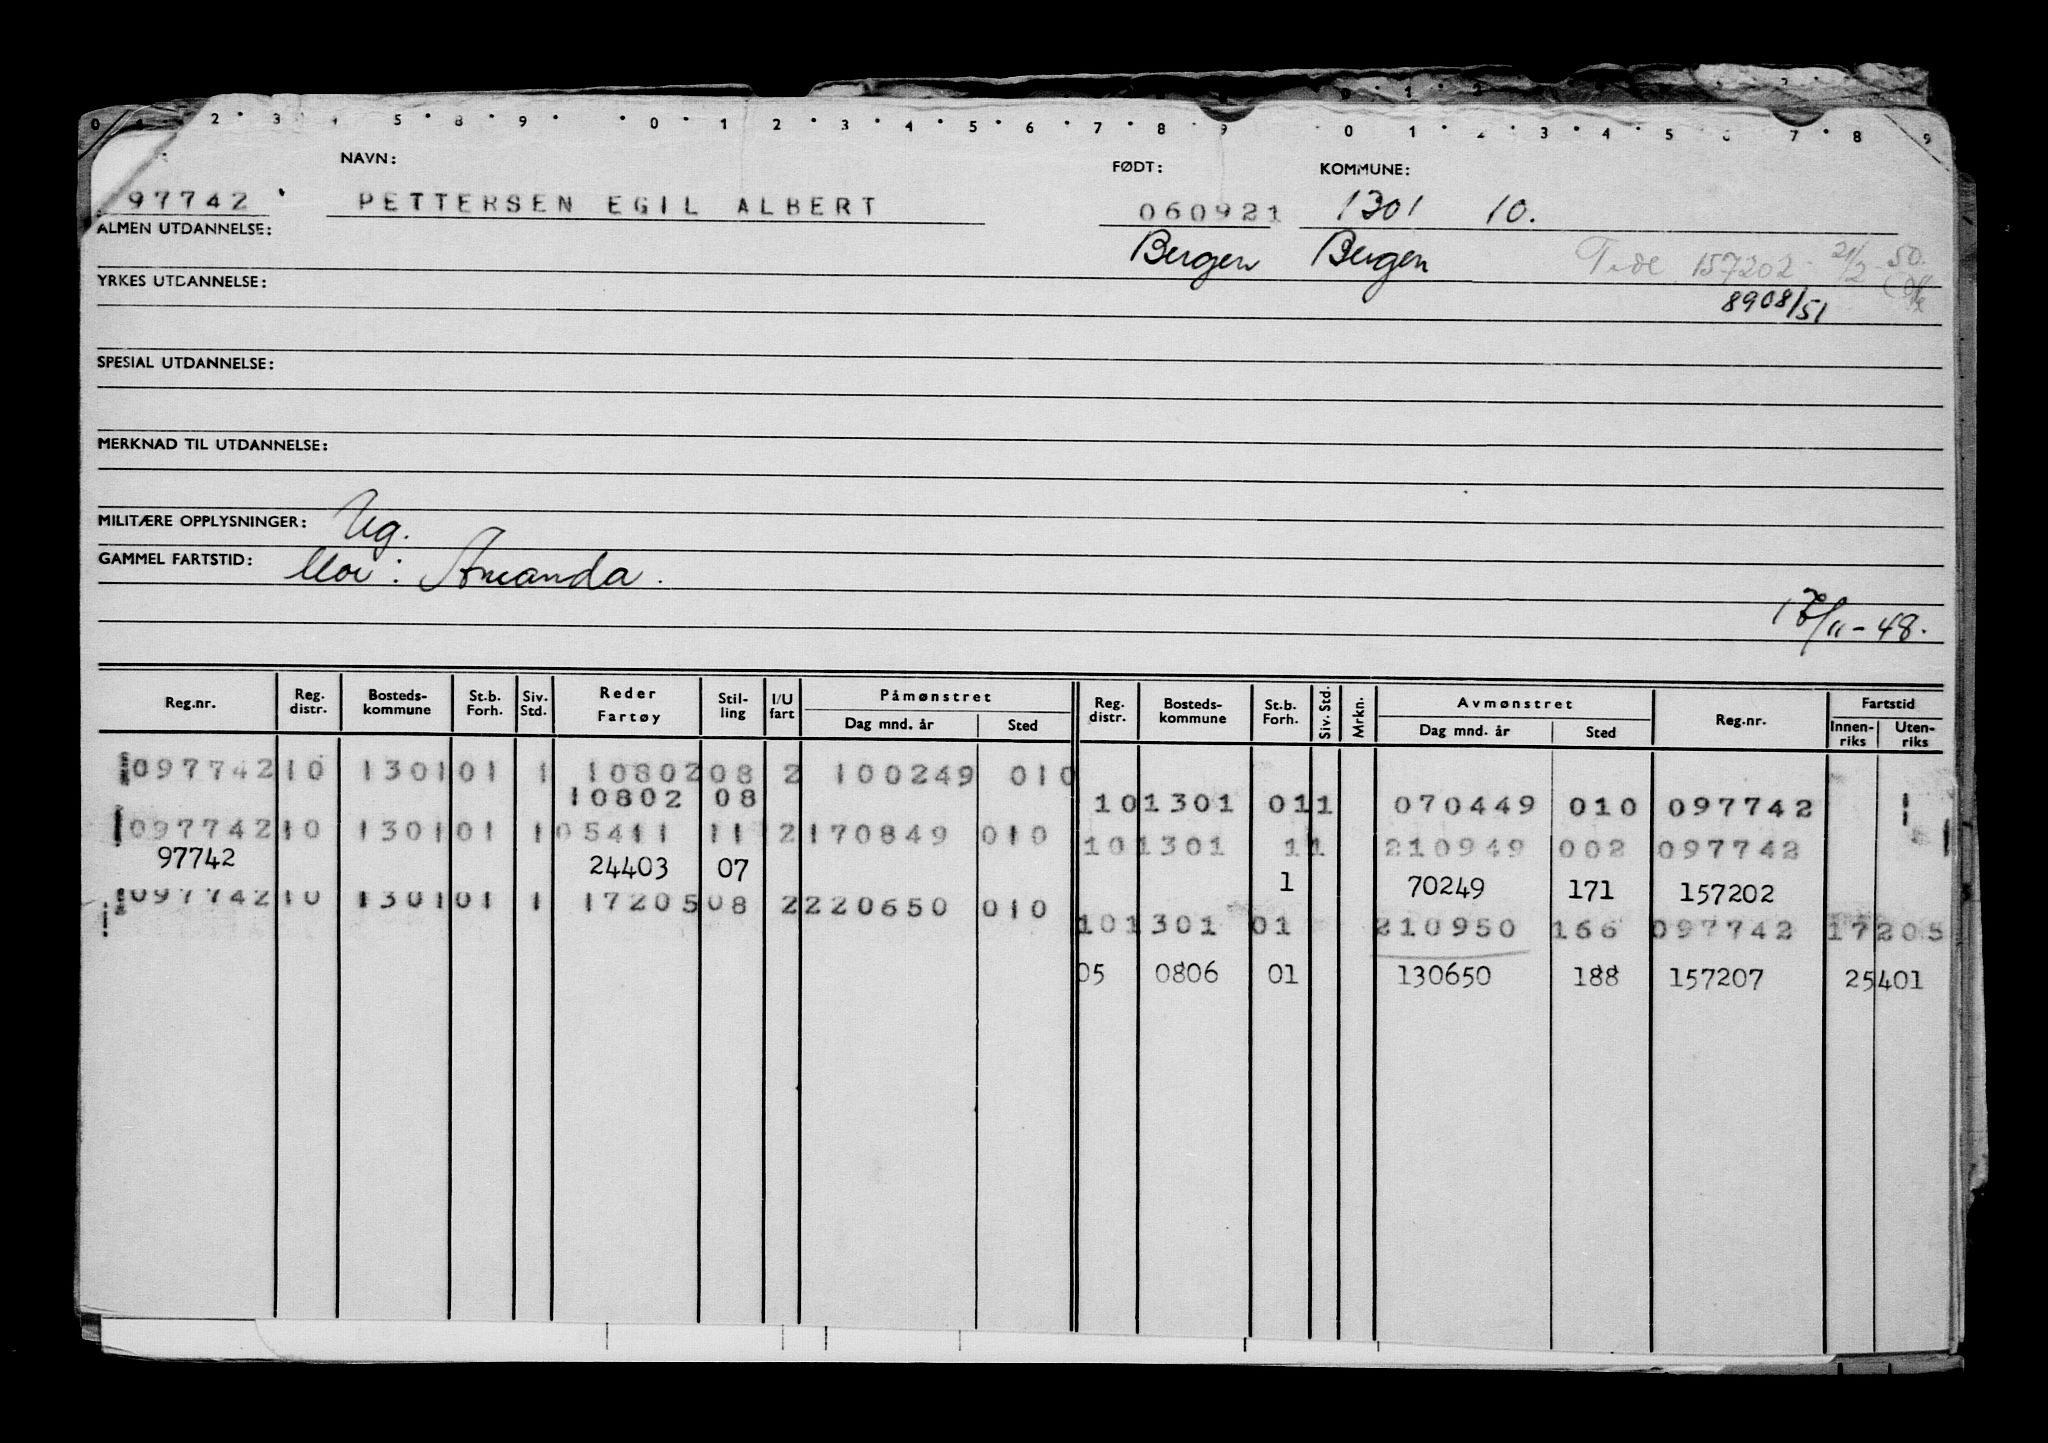 NAVN: FØDT: KOMMUNE:
97742 PETTERSEN EGIL ALBERT 060921 1301 10.
ALMEN UTDANNELSE: Bergen Bergen 157202 - 21/2 - 50.
YRKES UTDANNELSE: 8908/51
SPESIAL UTDANNELSE:
MERKNAD TIL UTDANNELSE:
MILITÆRE OPPLYSNINGER: Ug.
GAMMEL FARTSTID: Mor: Amanda.
/11-48.
Reg.nr. Reg. distr. Bosteds-kommune St.b. Forh. Siv. Std. Reder Fartøy Stil-ling I/U fart Påmønstret Dag mnd. år Sted Reg. distr. Bosteds-kommune St.b. Forh. Siv. Std. Mrkn. Avmønstret Dag mnd. år Sted Reg.nr. Fartstid Innen-riks Uten-riks
097742 10 1301 01 1 10802 08 2 100249 010
10802 08 10 1301 01 1 070449 010 097742
097742 10 1301 01 1 05411 11 2 170849 010
10 1301 11 210949 002 097742
97742 24403 07 1 70249 171 157202
097742 10 1301 01 1 17205 08 2 220650 010
10 1301 01 210950 166 097742 17205
05 0806 01 130650 188 157207 25401